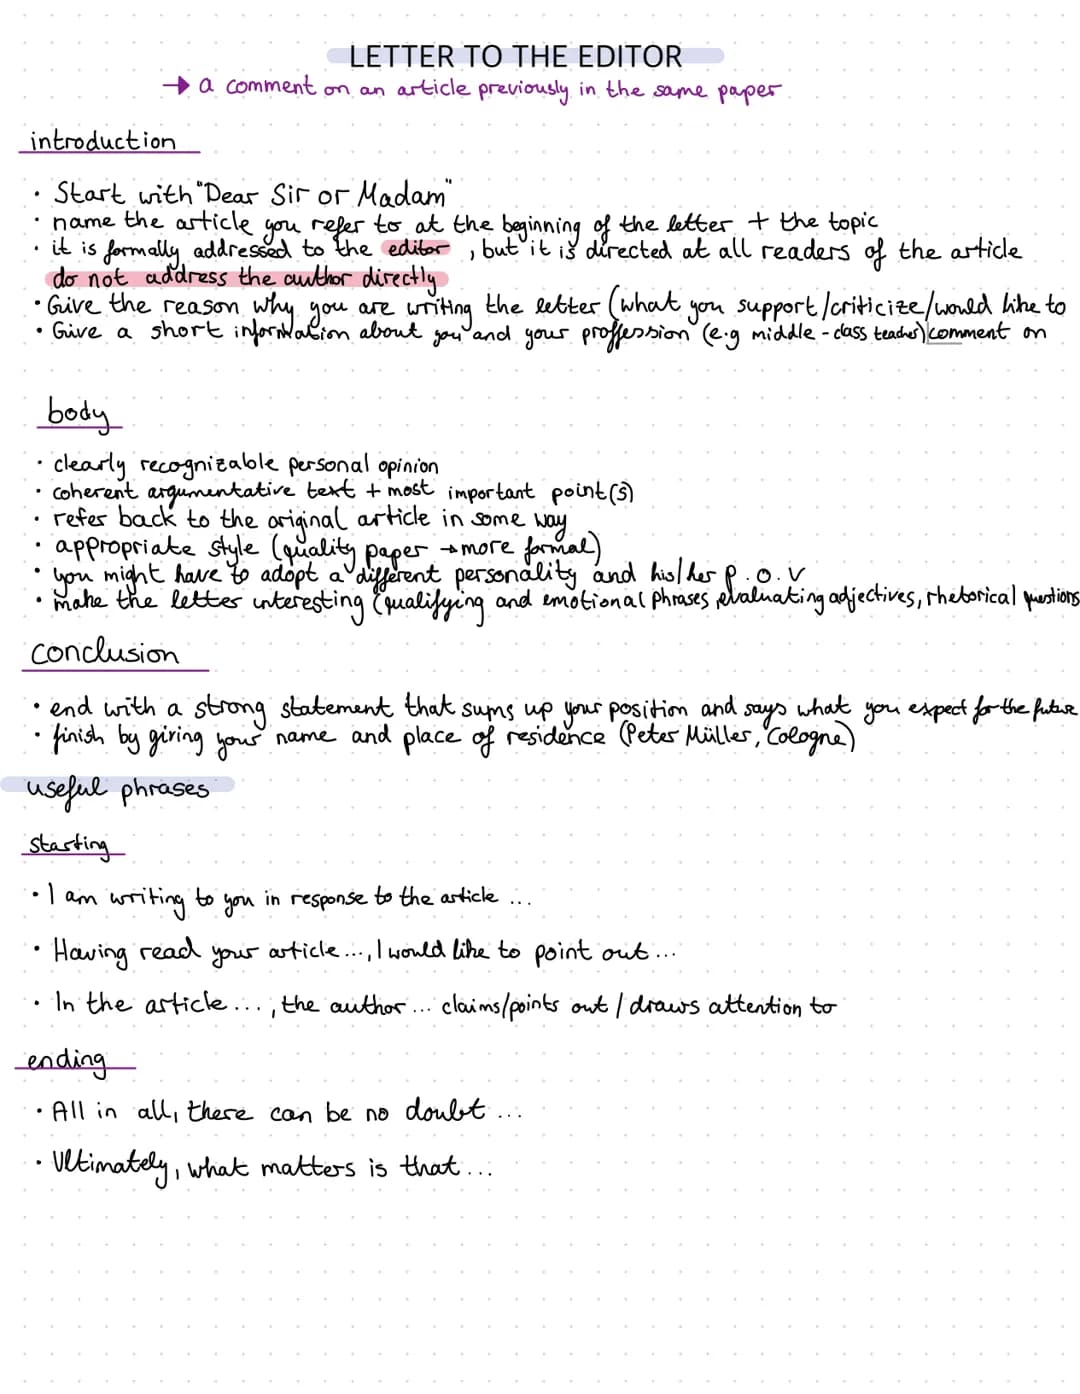 LETTER TO THE EDITOR
→ a comment on an article previously in the same paper
introduction
• Start with "Dear Sir or Madam"
• name the article you refer to at the beginning of the letter + the topic
• it is formally addressed to the editor, but it is directed at all readers of the article
do not address the author directly
• Give the reason why you are writing the letter (what you support/criticize/would like to
• Give a short information about you and your proffession (e.g middle-class teacher) comment on
body
• clearly recognizable personal opinion
• coherent argumentative text + most important point(s)
• refer back to the original article in some way
• appropriate style (quality paper → more formal)
• you might have to adopt a different personality and his/her p.o.v
• make the letter interesting (qualifying and emotional phrases, evaluating adjectives, rhetorical questions
conclusion
• end with a strong statement that sums up your position and says what you expect for the future
• finish by giving your name and place of residence (Peter Müller, Cologne)
useful phrases
starting
• I am writing to you in response to the article ...
• Having read your article ..., I would like to point out ...
• In the article ..., the author ... claims/points out / draws attention to
ending
• All in all, there can be no doubt ...
• Ultimately, what matters is that ...